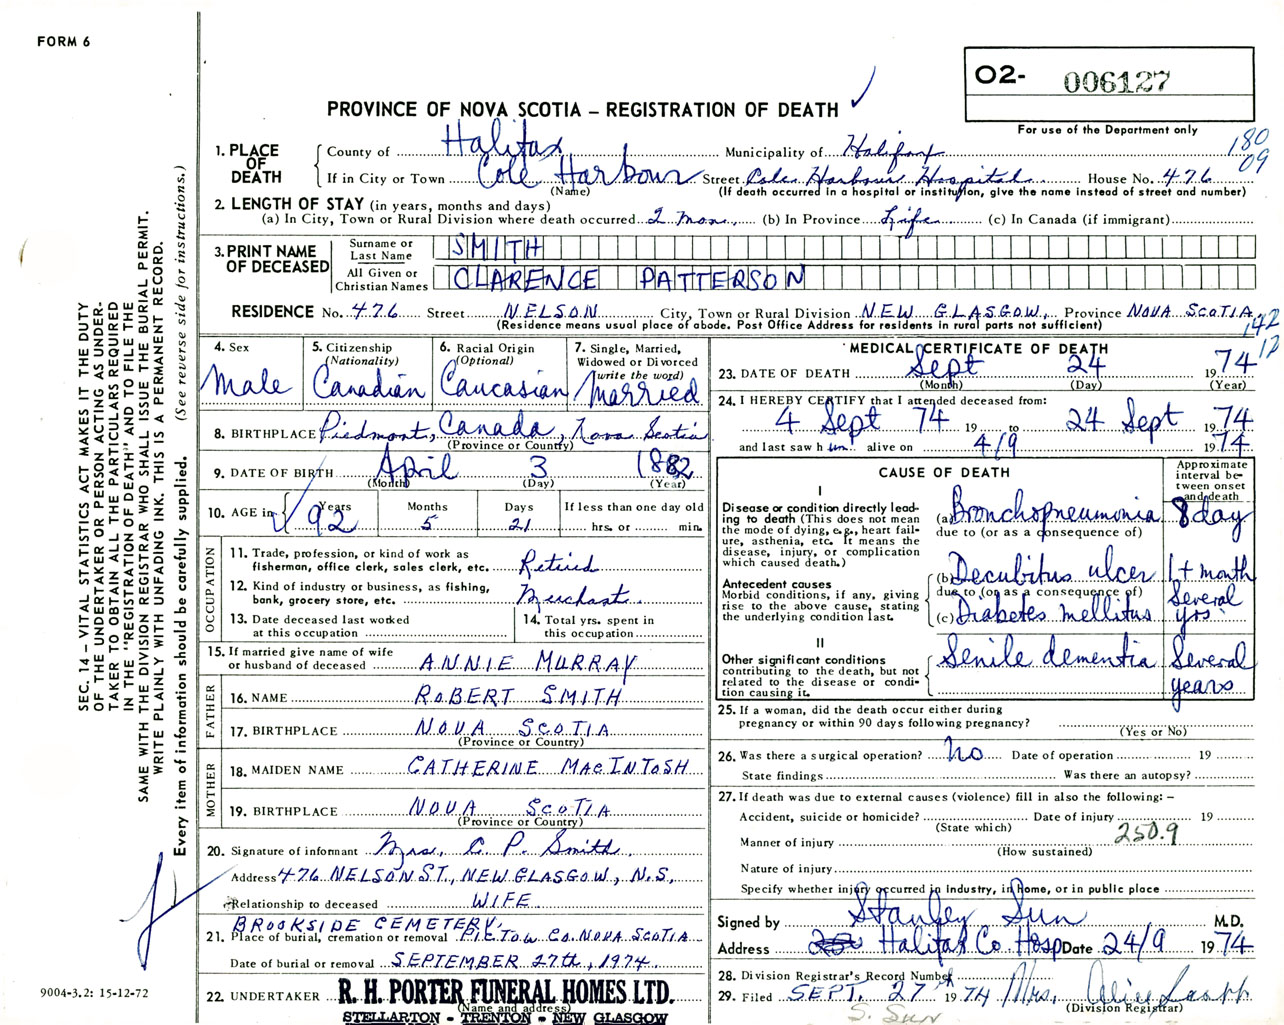 FORM 6
O2- 006127
For use of the Department only
PROVINCE OF NOVA SCOTIA – REGISTRATION OF DEATH
180
09
1. PLACE OF DEATH
County of Halifax Municipality of Halifax
If in City or Town Cole Harbour Street Cole Harbour Hospital House No. 476
(Name) (If death occurred in a hospital or institution, give the name instead of street and number)
2. LENGTH OF STAY (in years, months and days)
(a) In City, Town or Rural Division where death occurred 2 mon. (b) In Province Life (c) In Canada (if immigrant)
3. PRINT NAME OF DECEASED
Surname or Last Name SMITH
All Given or Christian Names CLARENCE PATTERSON
RESIDENCE No. 476 Street NELSON City, Town or Rural Division NEW GLASGOW, Province NOVA SCOTIA
(Residence means usual place of abode. Post Office Address for residents in rural parts not sufficient)
142
12
4. Sex Male
5. Citizenship (Nationality) Canadian
6. Racial Origin (Optional) Caucasian
7. Single, Married, Widowed or Divorced (write the word) Married
8. BIRTHPLACE Piedmont, Canada, Nova Scotia
(Province or Country)
9. DATE OF BIRTH April 3 1882
(Month) (Day) (Year)
10. AGE in Years 92 Months 5 Days 21 If less than one day old hrs. or min.
OCCUPATION
11. Trade, profession, or kind of work as fisherman, office clerk, sales clerk, etc. Retired
12. Kind of industry or business, as fishing, bank, grocery store, etc. Merchant
13. Date deceased last worked at this occupation
14. Total yrs. spent in this occupation
15. If married give name of wife or husband of deceased ANNIE MURRAY
FATHER
16. NAME ROBERT SMITH
17. BIRTHPLACE NOVA SCOTIA
(Province or Country)
MOTHER
18. MAIDEN NAME CATHERINE MACINTOSH
19. BIRTHPLACE NOVA SCOTIA
(Province or Country)
20. Signature of informant Mrs. C. P. Smith
Address 476 NELSON ST., NEW GLASGOW, N.S.
Relationship to deceased WIFE
BROOKSIDE CEMETERY,
21. Place of burial, cremation or removal PICTOW CO. NOVA SCOTIA
Date of burial or removal SEPTEMBER 27th, 1974.
22. UNDERTAKER R. H. PORTER FUNERAL HOMES LTD.
(Name and address)
STELLARTON - TRENTON - NEW GLASGOW
MEDICAL CERTIFICATE OF DEATH
23. DATE OF DEATH Sept 24 1974
(Month) (Day) (Year)
24. I HEREBY CERTIFY that I attended deceased from:
4 Sept 74 19 to 24 Sept 1974
and last saw h im alive on 4/9 1974
CAUSE OF DEATH
Approximate interval between onset and death
I
Disease or condition directly leading to death (This does not mean the mode of dying, e.g., heart failure, asthenia, etc. It means the disease, injury, or complication which caused death.)
(a) Bronchopneumonia 8 day
due to (or as a consequence of)
Antecedent causes
Morbid conditions, if any, giving rise to the above cause, stating the underlying condition last.
(b) Decubitus ulcer 1+ month
due to (or as a consequence of)
(c) Diabetes mellitus Several yrs
II
Other significant conditions contributing to the death, but not related to the disease or condition causing it.
Senile dementia Several years
25. If a woman, did the death occur either during pregnancy or within 90 days following pregnancy?
(Yes or No)
26. Was there a surgical operation? no Date of operation 19
State findings Was there an autopsy?
27. If death was due to external causes (violence) fill in also the following: –
Accident, suicide or homicide? Date of injury 19
(State which) 250.9
Manner of injury
(How sustained)
Nature of injury
Specify whether injury occurred in Industry, in Home, or in public place
Signed by Stanley Sun M.D.
Address Halifax Co. Hosp Date 24/9 1974
28. Division Registrar's Record Number
29. Filed SEPT. 27th 1974 Mrs.
(Division Registrar)
S. Sun
SEC. 14 – VITAL STATISTICS ACT MAKES IT THE DUTY
OF THE UNDERTAKER OR PERSON ACTING AS UNDER-
TAKER TO OBTAIN ALL THE PARTICULARS REQUIRED
IN THE "REGISTRATION OF DEATH" AND TO FILE THE
SAME WITH THE DIVISION REGISTRAR WHO SHALL ISSUE THE BURIAL PERMIT.
WRITE PLAINLY WITH UNFADING INK. THIS IS A PERMANENT RECORD.
Every item of information should be carefully supplied. (See reverse side for instructions.)
9004-3.2: 15-12-72